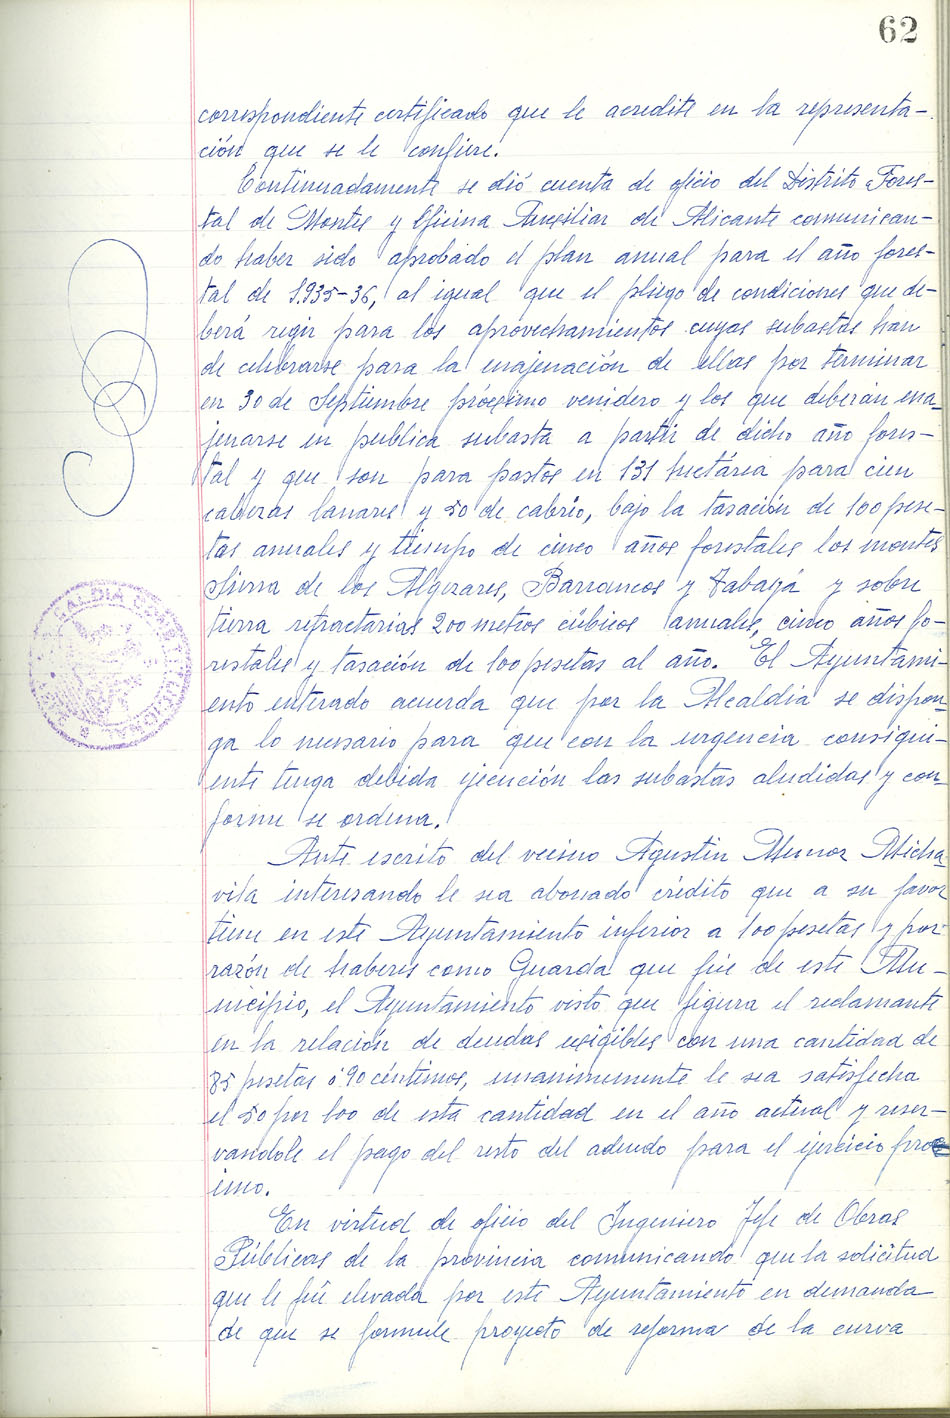 62
correspondiente certificado que le acredite en la representa-
ción que se le confiere.
Continuadamente se dió cuenta de oficio del Distrito Fores-
tal de Montes y Oficina Auxiliar de Alicante comunican-
do haber sido aprobado el plan anual para el año fores-
tal de 1.935-36, al igual que el pliego de condiciones que de-
berá regir para los aprovechamientos cuyas subastas han
de celebrarse para la enajenación de ellas por terminar
en 30 de Septiembre próximo venidero y los que deberán ena-
jenarse en publica subasta a partir de dicho año fores-
tal y que son para pastos en 131 hectárea para cien
cabezas lanares y 50 de cabrío, bajo la tasación de 100 pese-
tas anuales y tiempo de cinco años forestales los montes
Sierra de los Algezares, Barrancos y Tabayá y sobre
tierra refractarias 200 metros cúbicos anuales, cinco años fo-
restales y tasación de 100 pesetas al año. El Ayuntami-
ento enterado acuerda que por la Alcaldia se dispon-
ga lo necesario para que con la urgencia consigui-
ente tenga debida ejecución las subastas aludidas y con-
forme se ordena.
Ante escrito del vecino Agustin Munoz Micha-
vila interesando le sea abonado crédito que a su favor
tiene en este Ayuntamiento inferior a 100 pesetas y por
razón de haberes como Guarda que fué de este Mu-
nicipio, el Ayuntamiento visto que figura el reclamante
en la relación de deudas exigibles con una cantidad de
85 pesetas 90 céntimos, unanimemente le sea satisfecha
el 50 por 100 de esta cantidad en el año actual y reser-
vandole el pago del resto del adeudo para el ejercicio prox
imo.
En virtud de oficio del Ingeniero Jefe de Obras
Públicas de la provincia comunicando que la solicitud
que le fué elevada por este Ayuntamiento en demanda
de que se formule proyecto de reforma de la curva
ALCALDIA CONSTITUCIONAL